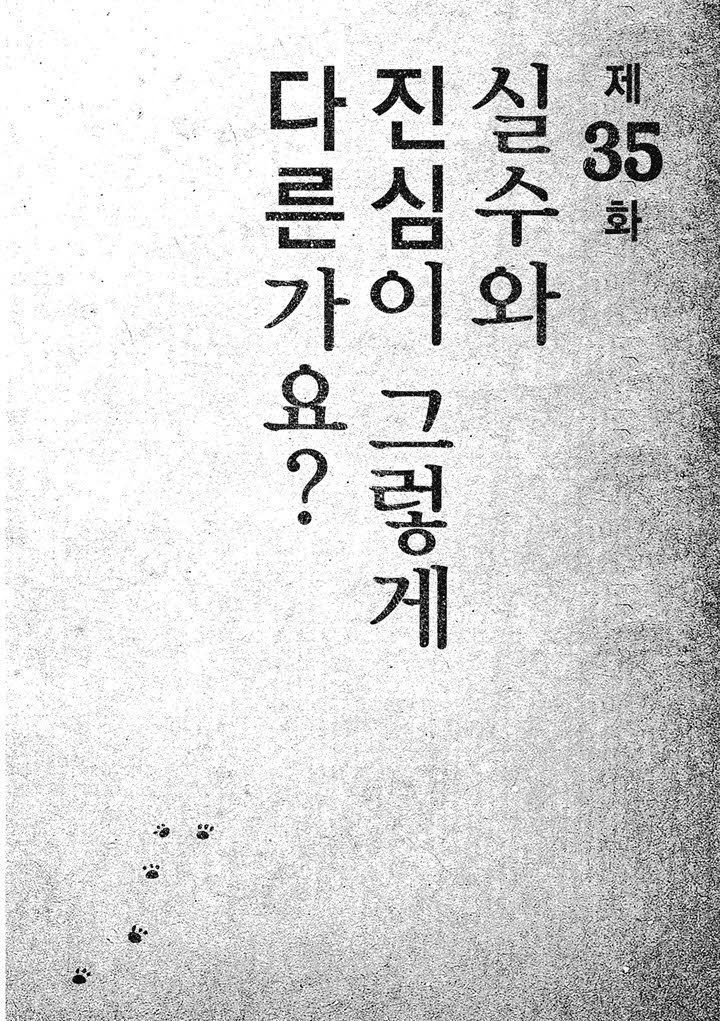 제35화
실수와
진심이 그렇게
다른가요?